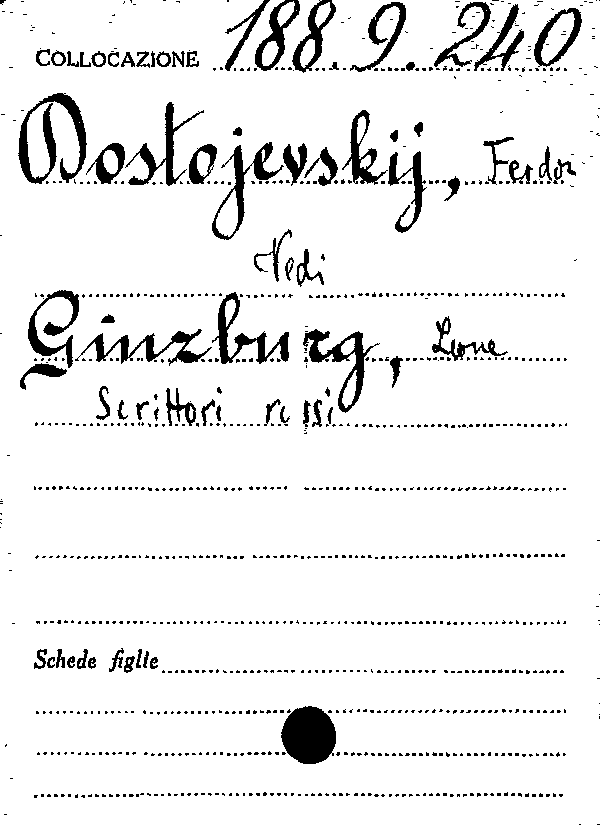 COLLOCAZIONE 188.9.240
Dostojevskij, Fedor
Vedi
Ginzburg, Leone
Scrittori russi
Schede figlie